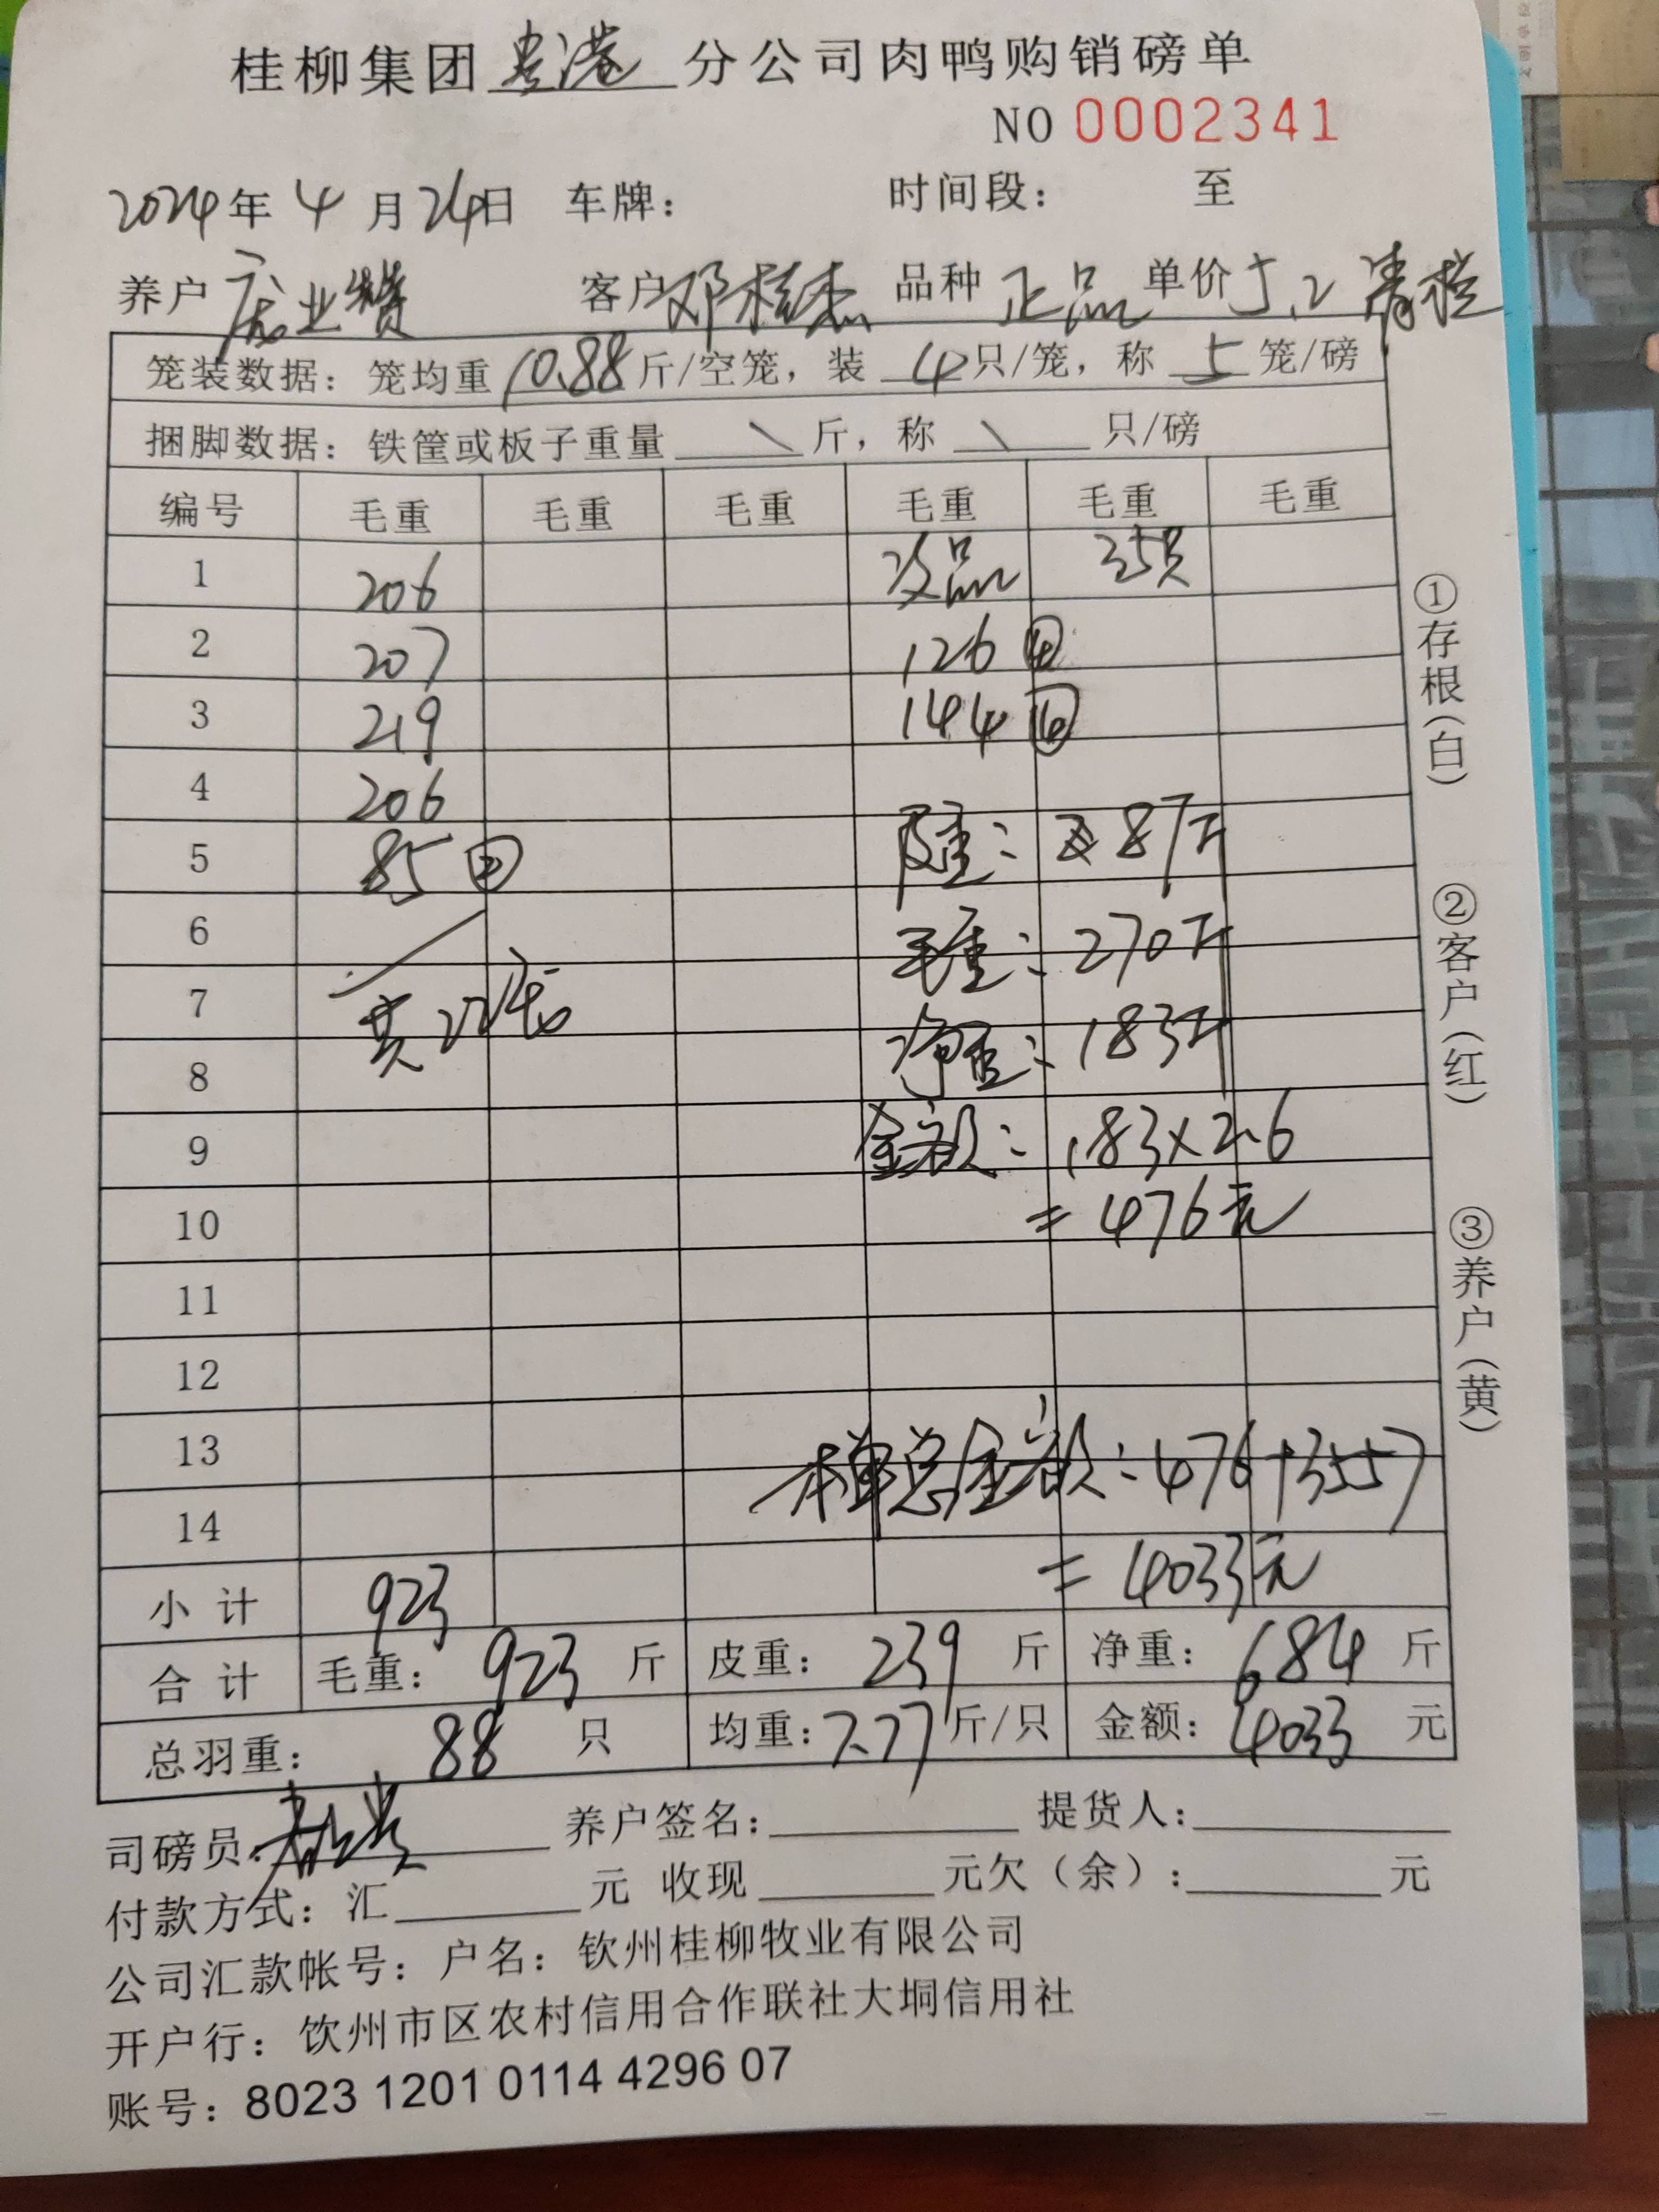 桂柳集团贵港分公司肉鸭购销磅单
NO 0002341
2024年4月24日 车牌： 时间段： 至
养户 庞业赞 客户 邓桂杰 品种 正品 单价 5.2 清栏
笼装数据：笼均重10.88斤/空笼，装4只/笼，称5笼/磅
捆脚数据：铁筐或板子重量\斤，称\只/磅
编号 毛重 毛重 毛重 毛重 毛重 毛重
1 206 次品 25只
2 207 126 ④
3 219 144 ④
4 206
5 85 ② 皮重：87斤
6 毛重：270斤
7 共22笼
8 净重：183斤
9 金额：183×2.6
10 =476元
11
12
13 本单总金额：476+3557
14
小计 923 =4033元
合计 毛重：923斤 皮重：239斤 净重：684斤
总羽重：88只 均重：7.77斤/只 金额：4033元
司磅员： 养户签名： 提货人：
付款方式：汇 元 收现 元欠（余）： 元
公司汇款帐号：户名：钦州桂柳牧业有限公司
开户行：饮州市区农村信用合作联社大垌信用社
账号：8023 1201 0114 4296 07
①存根（白）
②客户（红）
③养户（黄）